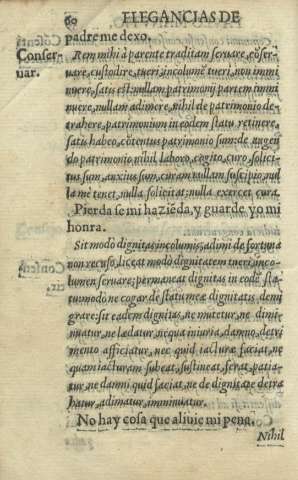 60 ELEGANCIAS DE
padre me dexo.
Conser-
uar.
Rem mihi à parente traditam seruare, cõser-
uare, custodire, tueri, incolumẽ tueri, non immi
nuere, satis est: nullam patrimonij partem immi
nuere, nullam adimere, nihil de patrimonio de-
trahere, patrimonium in eodem statu retinere,
satis habeo, cõtentus patrimonio sum: de augen
do patrimonio nihil laboro, cogito, curo, solici-
tus sum, anxius sum, curam nullam suscipio, nul
la me tenet, nulla solicitat, nulla exercet cura.
Pierda se mi haziẽda, y guarde yo mi
honra.
Sit modo dignitas incolumis, adimi de fortuna
non recuso, liceat modò dignitatem tueri, inco-
lumen seruare: permaneat dignitas in eodẽ sta-
tu: modo ne cogar de statu meæ dignitatis demi
grare: sit eadem dignitas, ne mutetur, ne dimi-
nuatur, ne lædatur, ne qua iniuria, damno, detri
mento afficiatur, nec quid iacturæ faciat, ne
quam iacturam subeat, sustineat, ferat, patia-
tur, ne damni quid faciat, ne de dignitate detra
hatur, adimatur, imminuatur.
No hay cosa que aliuie mi pena.
Nihil